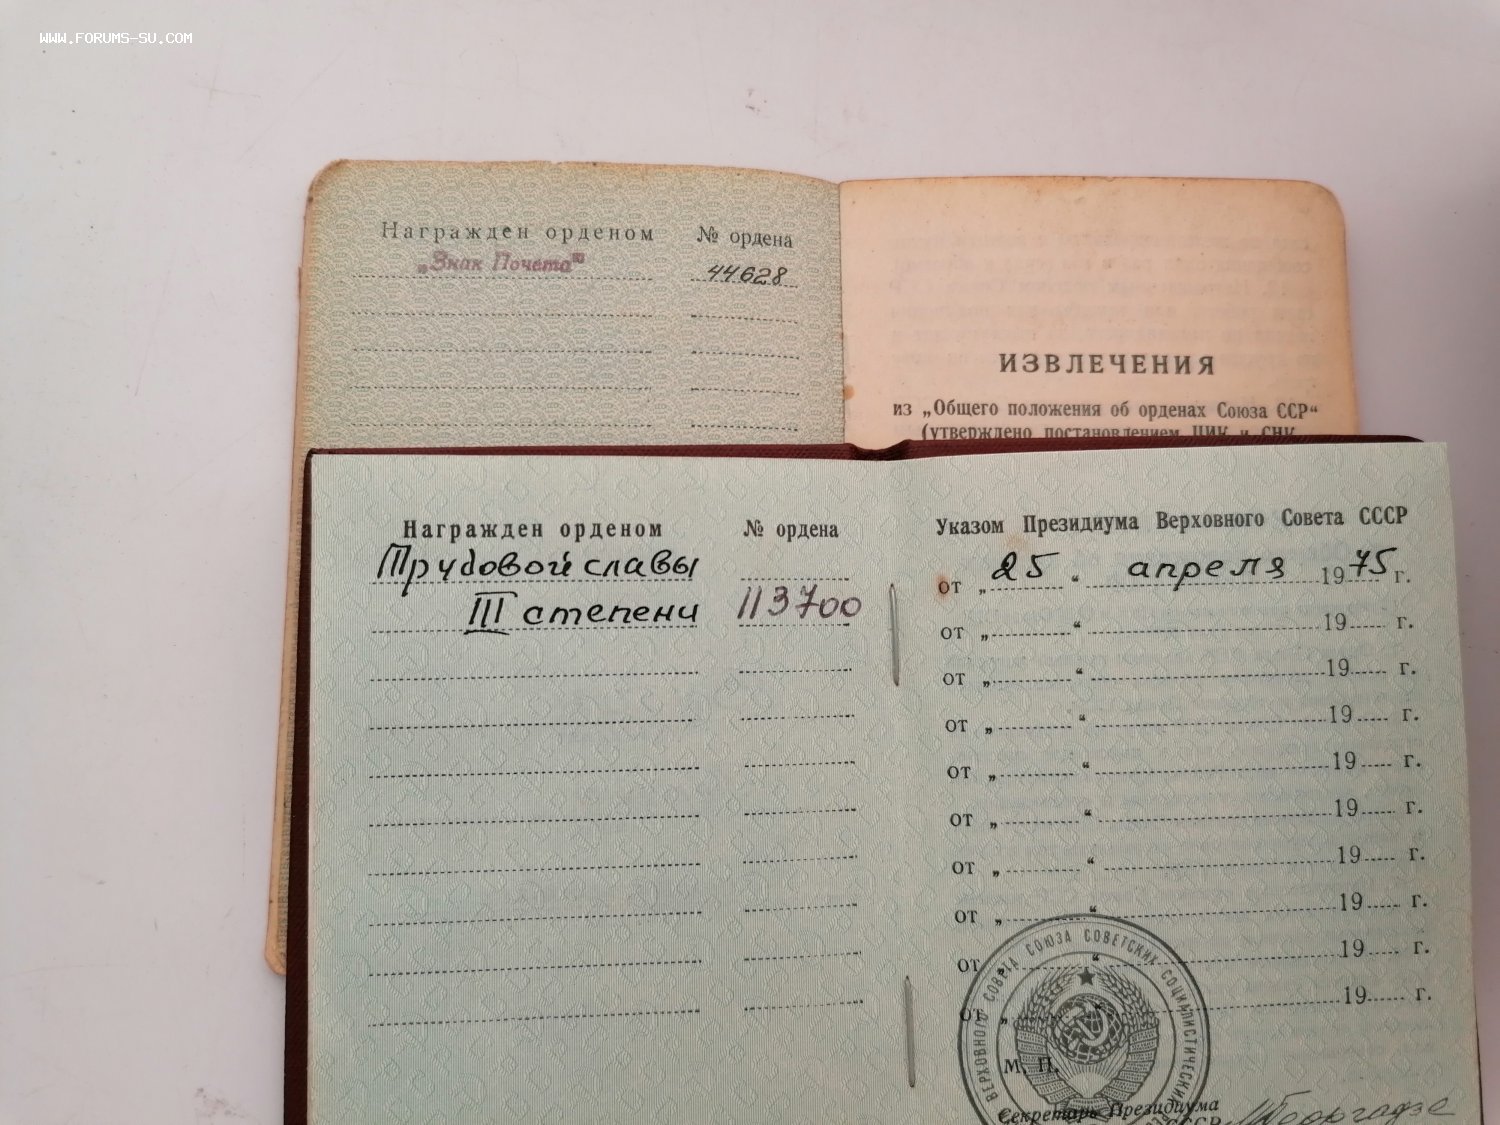 WWW.FORUMS-SU.COM
Награжден орденом № ордена
„Знак Почета" 44628
ИЗВЛЕЧЕНИЯ
из „Общего положения об орденах Союза ССР"
(утверждено постановлением ЦИК и СНК
Награжден орденом № ордена
Трудовой славы
III степени 113700
Указом Президиума Верховного Совета СССР
от „ 25 " апреля 1975 г.
от „ " 19 г.
от „ " 19 г.
от „ " 19 г.
от „ " 19 г.
от „ " 19 г.
от „ " 19 г.
от „ " 19 г.
от „ " 19 г.
от „ " 19 г.
ВЕРХОВНОГО СОВЕТА СОЮЗА СОВЕТСКИХ СОЦИАЛИСТИЧЕСКИХ
М. П.
Секретарь Президиума
СССР
Георгадзе